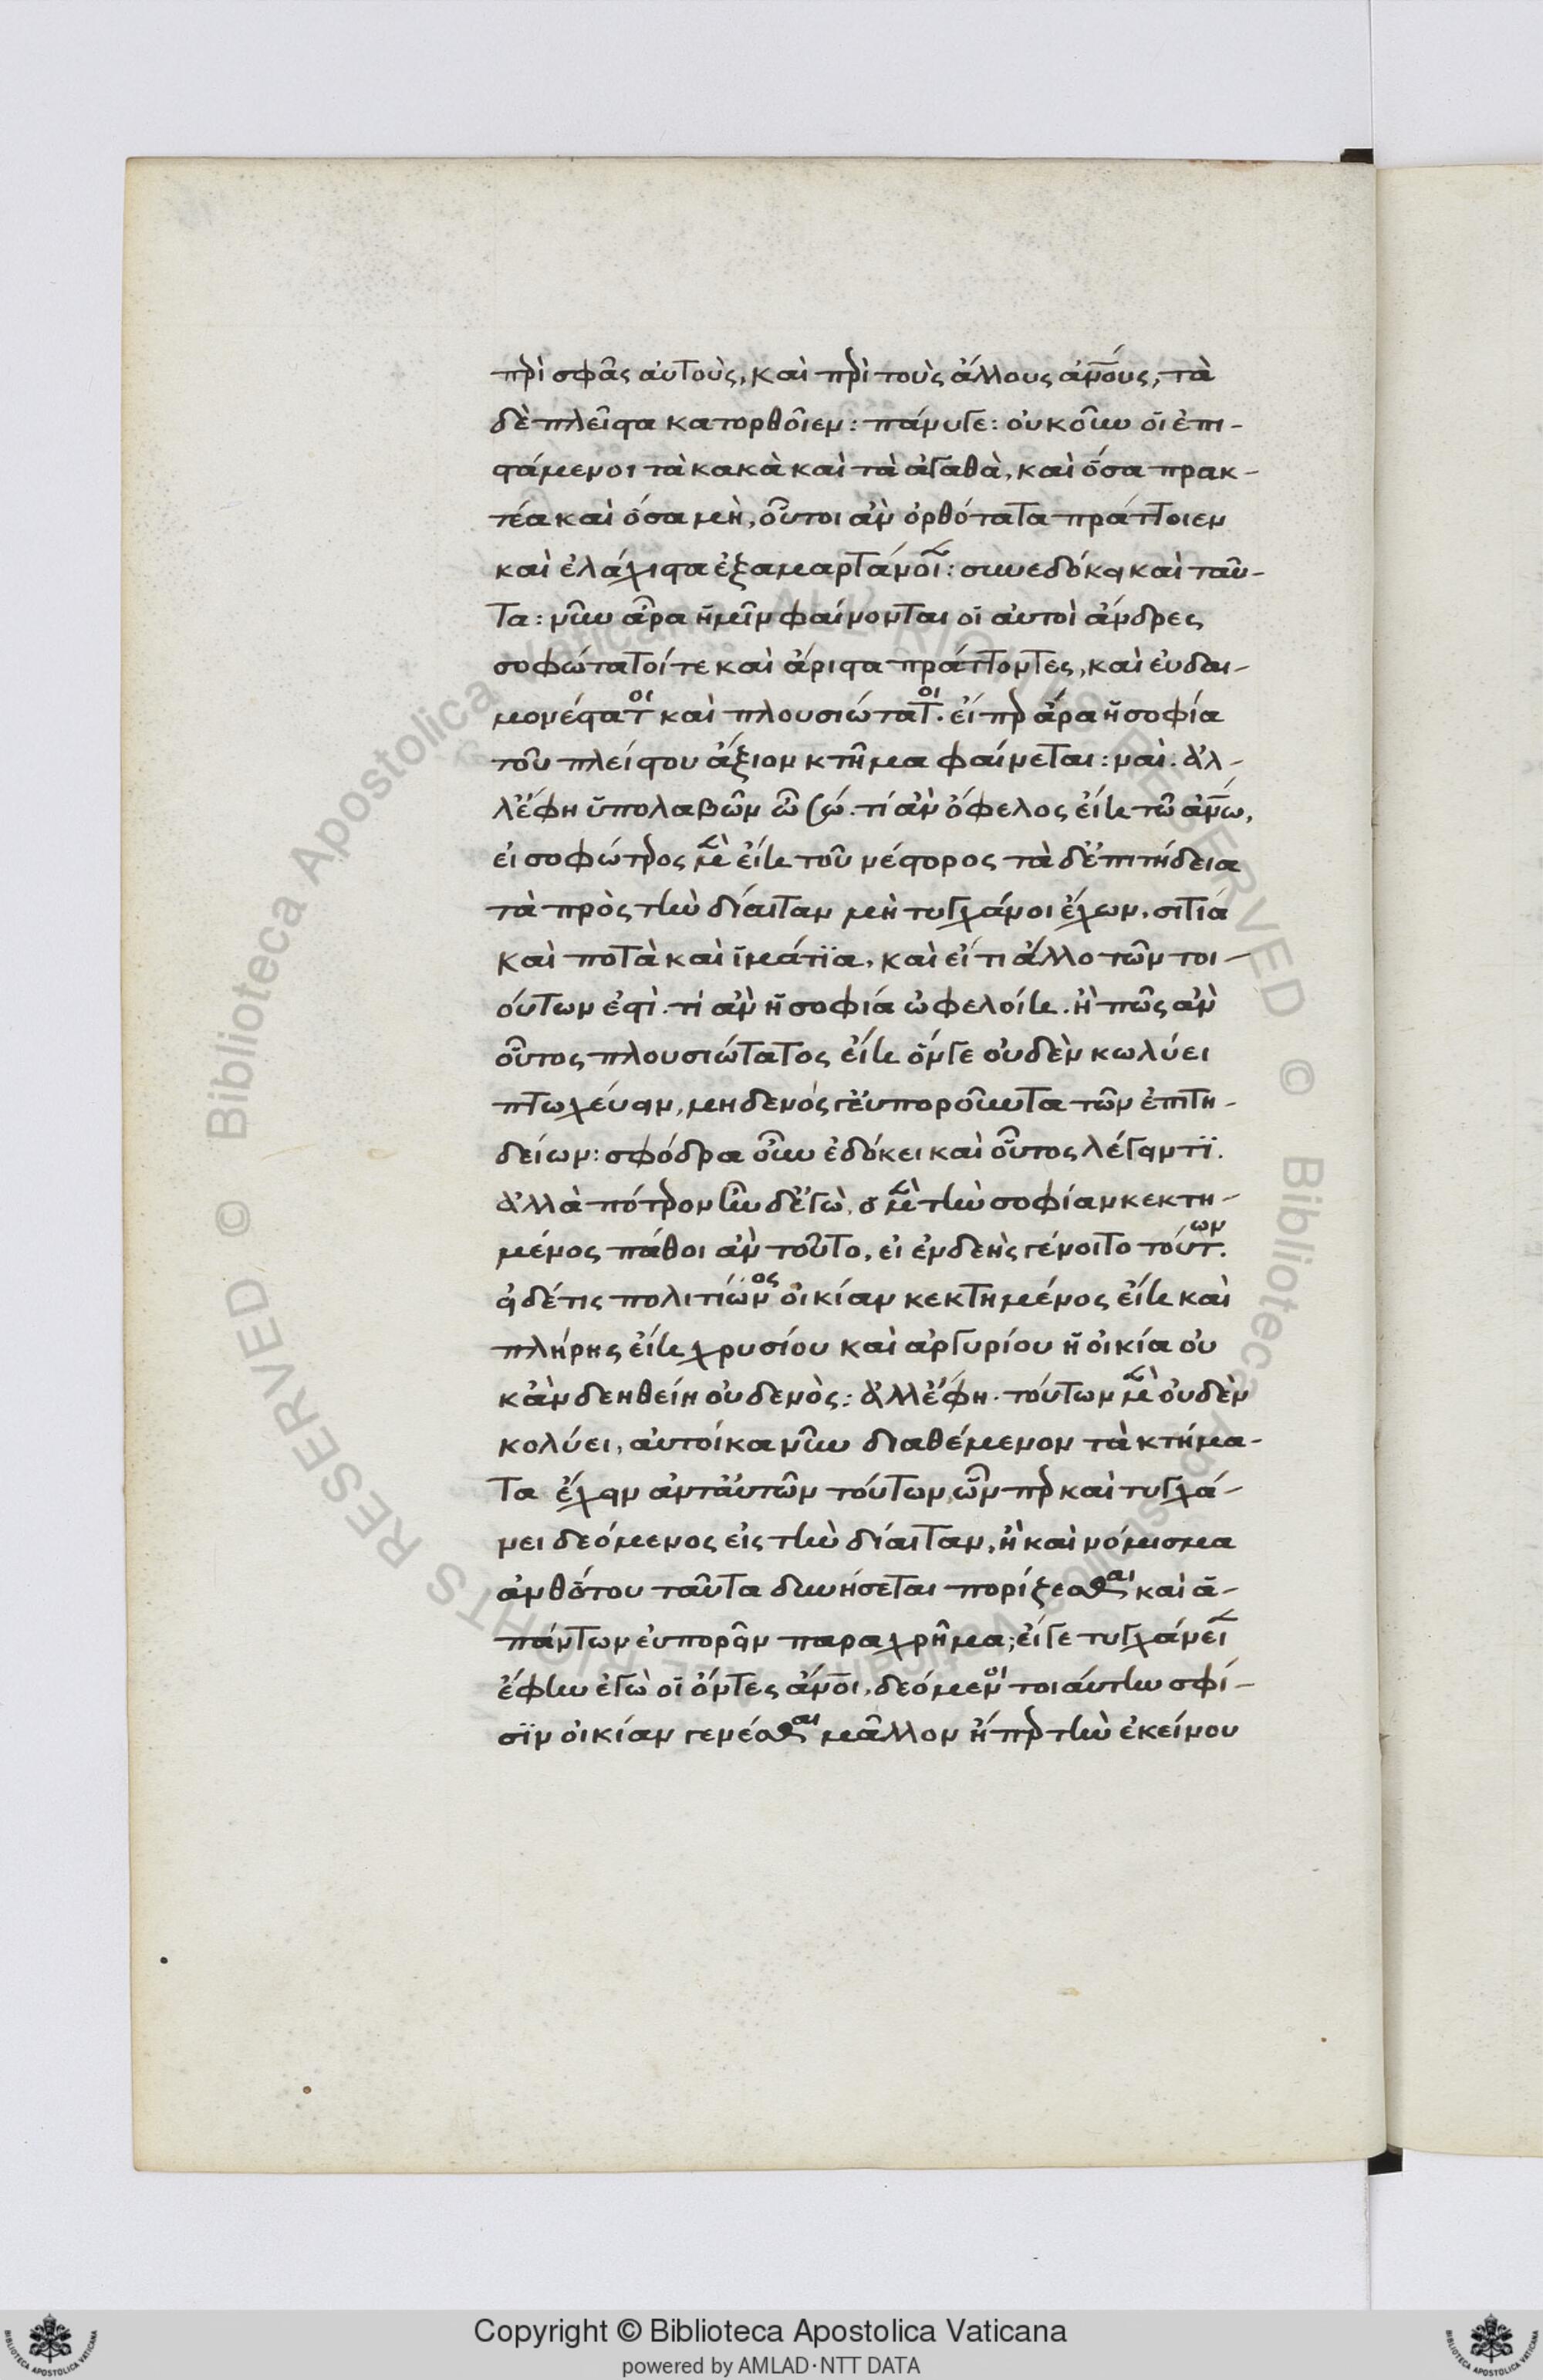 περὶ σφᾶς αὐτοὺς, καὶ περὶ τοὺς ἄλλους ἀνους, τὰ
δὲ πλεῖστα κατορθοῖεν : πάνυγε : οὐκοῦν οἱ ἐπι-
στάμενοι τὰ κακὰ καὶ τὰ ἀγαθὰ, καὶ ὅσα πρακ-
τέα καὶ ὅσα μὴ, οὗτοι ἂν ὀρθότατα πράττοιεν
καὶ ἐλάχιστα ἐξαμαρτάνοι : συνεδόκει καὶ ταῦ-
τα : νῦν ἆρα ἡμῖν φαίνονται οἱ αὐτοὶ ἄνδρες
σοφώτατοί τε καὶ ἄριστα πράττοντες, καὶ εὐδαι-
μονέστατοι καὶ πλουσιώτατοι. εἴπερ ἄρα ἡ σοφία
τοῦ πλείστου ἄξιον κτῆμα φαίνεται : ναί. ἀλ-
λ' ἔφη ὑπολαβῶν ὦ σώ. τί ἂν ὄφελος εἴη τῶ ἀνω,
εἰ σοφώτερος μὲν εἴη τοῦ νέστορος τὰ δ' ἐπιτήδεια
τὰ πρὸς τὴν δίαιταν μὴ τυγχάνοι ἔχων, σιτία
καὶ ποτὰ καὶ ἱμάτϊα, καὶ εἴ τι ἄλλο τῶν τοι-
ούτων ἐστὶ. τί ἂν ἡ σοφία ὠφελοίη. ἢ πῶς ἂν
οὗτος πλουσιώτατος εἴη ὅν γε οὐδὲν κωλύει
πτωχεύειν, μηδενός γ' εὐποροῦντα τῶν ἐπιτη-
δείων : σφόδρα οὖν ἐδόκει καὶ οὗτος λέγειν τϊ.
ἀλλὰ πότερον ἦν δ' ἐγὼ, ὁ μὲν τὴν σοφίαν κεκτη-
μένος πάθοι ἂν τοῦτο, εἰ ἐνδεὴς γένοιτο τούτων.
εἰ δέ τις πολιτίωνος οἰκίαν κεκτημένος εἴη καὶ
πλήρης εἴη χρυσίου καὶ ἀργυρίου ἡ οἰκία οὐ
κἂν δεηθείη οὐδενὸς : ἀλλ' ἔφη. τούτων μὲν οὐδὲν
κολύει, αὐτοίκα νῦν διαθέμενον τὰ κτήμα-
τα ἔχειν ἀντ' αὐτῶν τούτων, ὧν περ καὶ τυγχά-
νει δεόμενος εἰς τὴν δίαιταν, ἢ καὶ νόμισμα
ἀνθ' ὅτου ταῦτα δυνήσεται πορίζεσθαι καὶ ἁ-
πάντων εὐπορεῖν παραχρῆμα; εἴ γε τυγχάνει
ἔφην ἐγὼ οἱ ὄντες ἄνοι, δεόμενοι τοιάυτην σφί-
σϊν οἰκίαν γενέσθαι μᾶλλον ἤπερ τὴν ἐκείνου
Copyright © Biblioteca Apostolica Vaticana
powered by AMLAD·NTT DATA